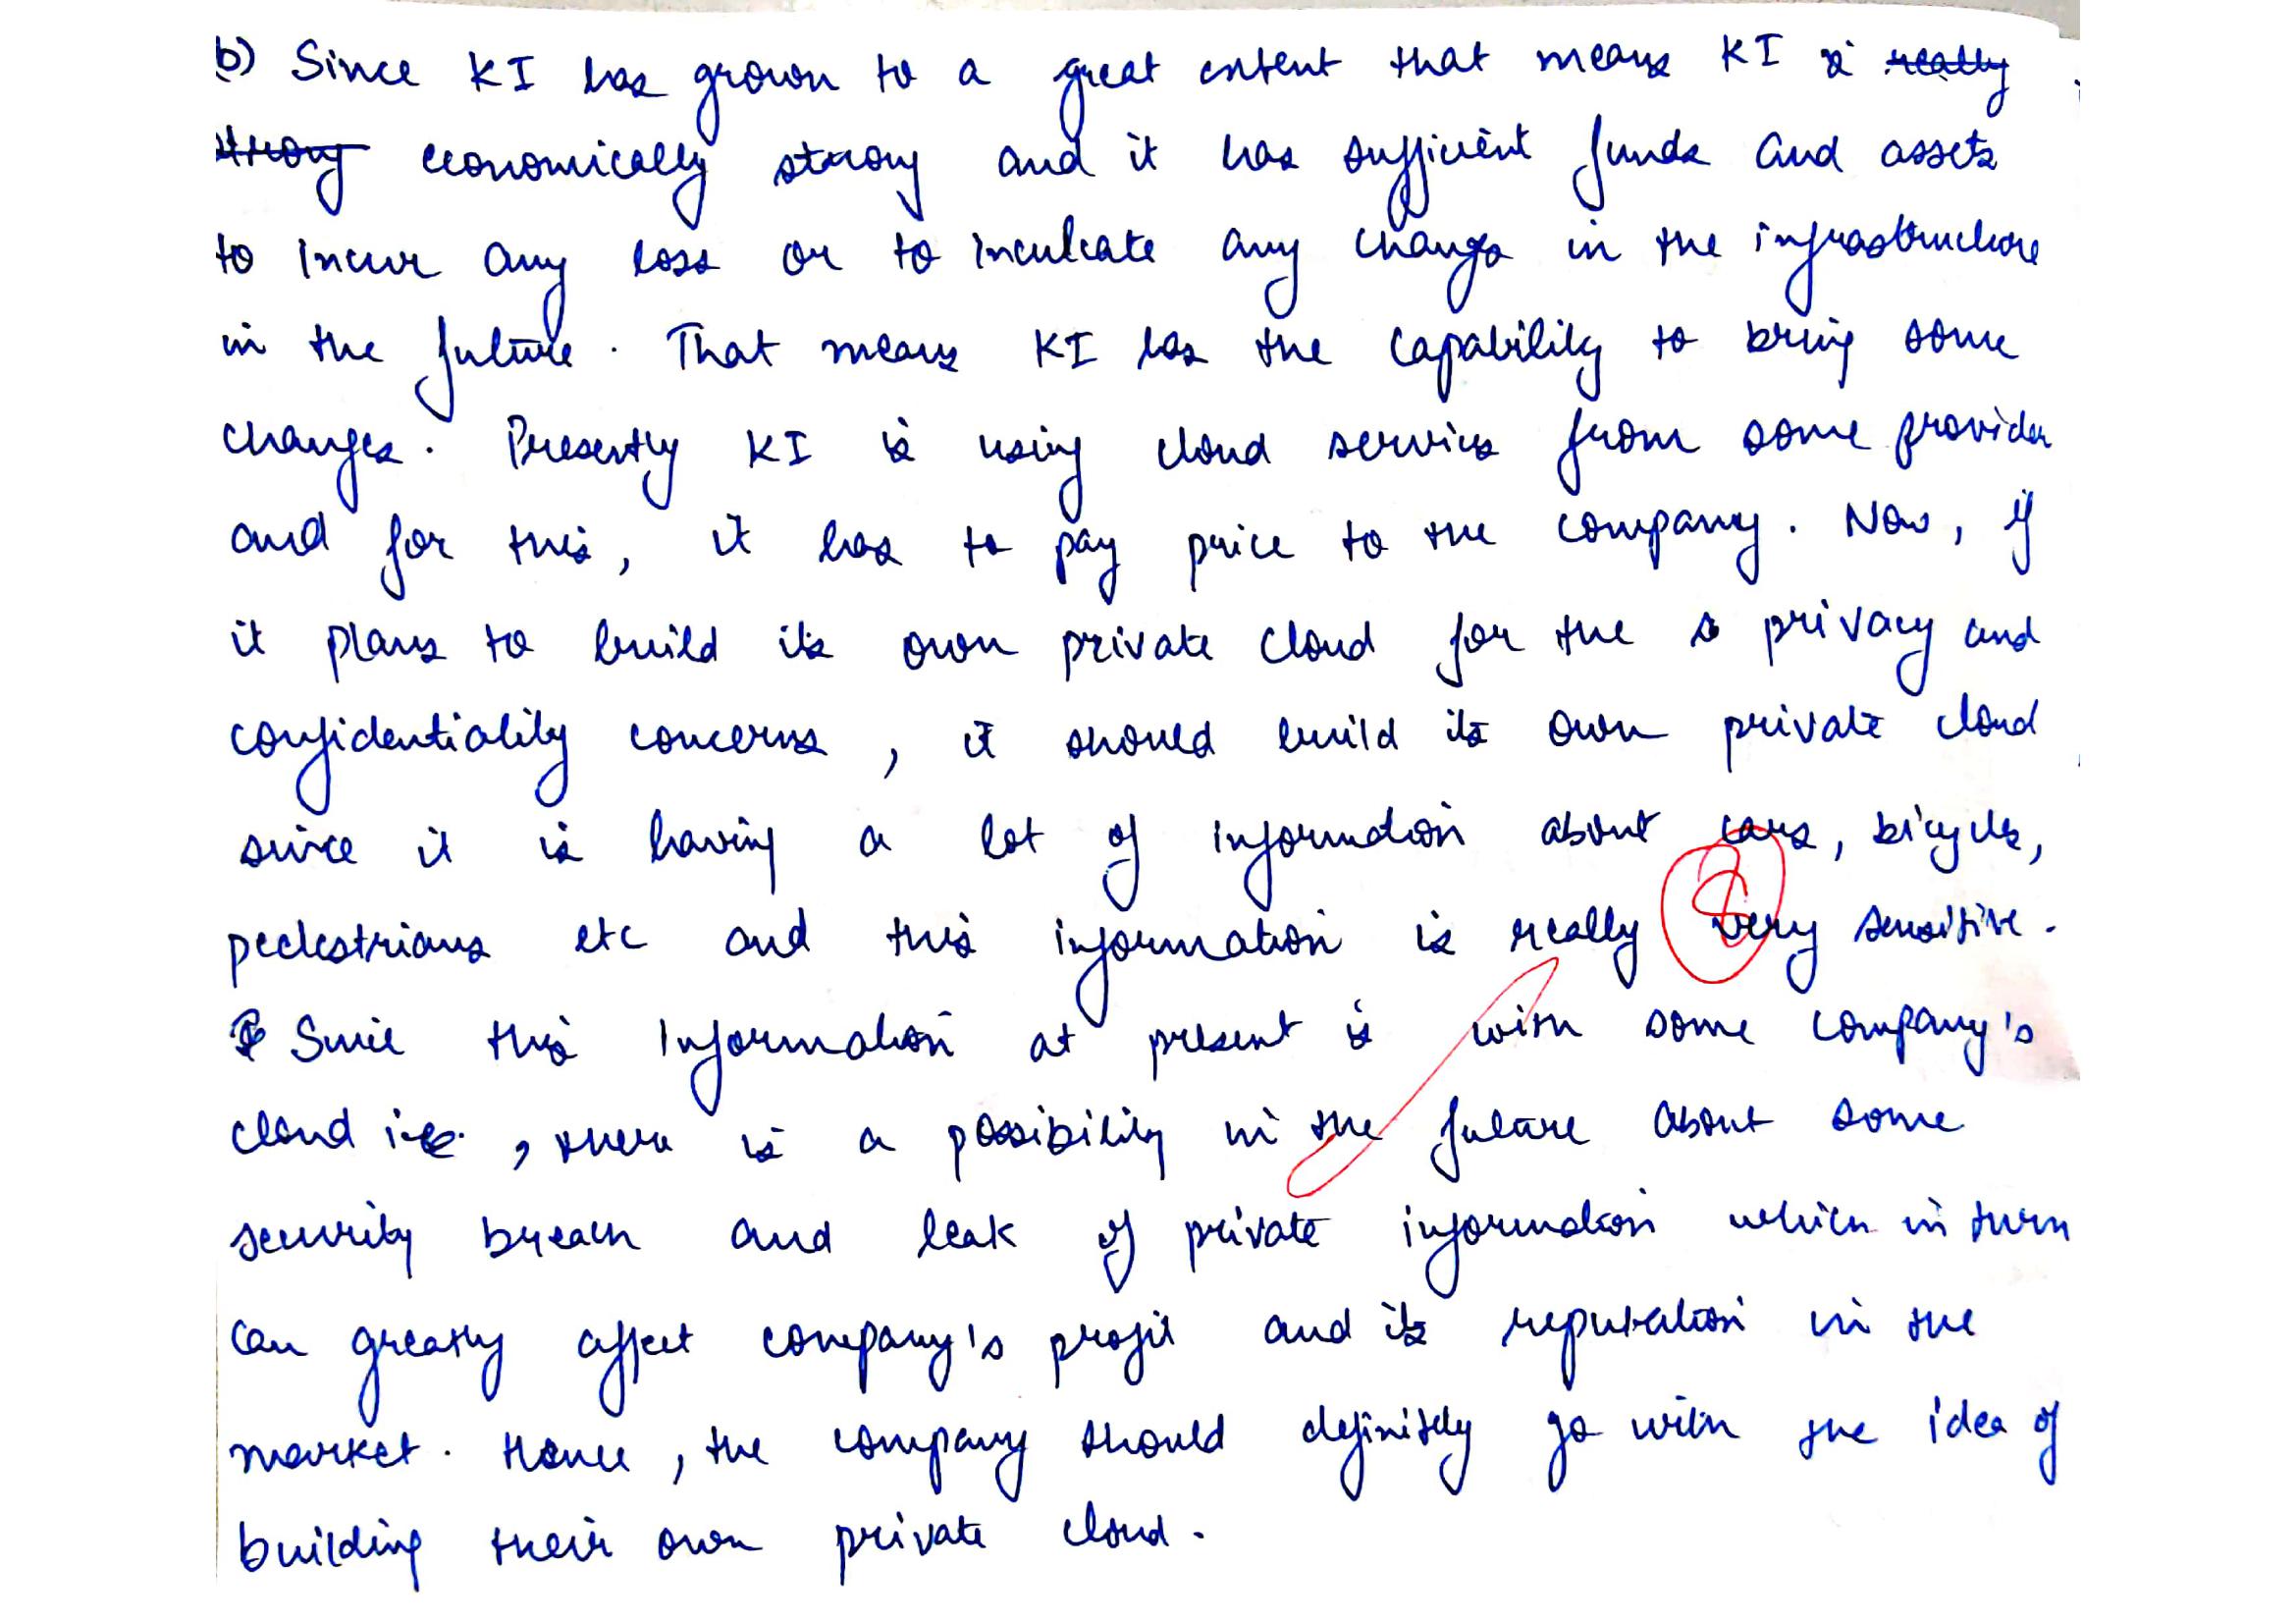 b) Since KI has grown to a great extent that means KI is really
strong economically strong and it has sufficient funds and assets
to incur any loss or to inculcate any change in the infrastructure
in the future. That means KI has the capability to bring some
changes. Presently KI is using cloud services from some provider
and for this, it has to pay price to the company. Now, if
it plans to build its own private cloud for the privacy and
confidentiality concerns, it should build its own private cloud
since it is having a lot of information about cars, bicycles,
pedestrians etc and this information is really very sensitive.
Since this information at present is with some company's
cloud, there is a possibility in the future about some
security breach and leak of private information which in turn
can greatly affect company's profit and its reputation in the
market. Hence, the company should definitely go with the idea of
building their own private cloud.